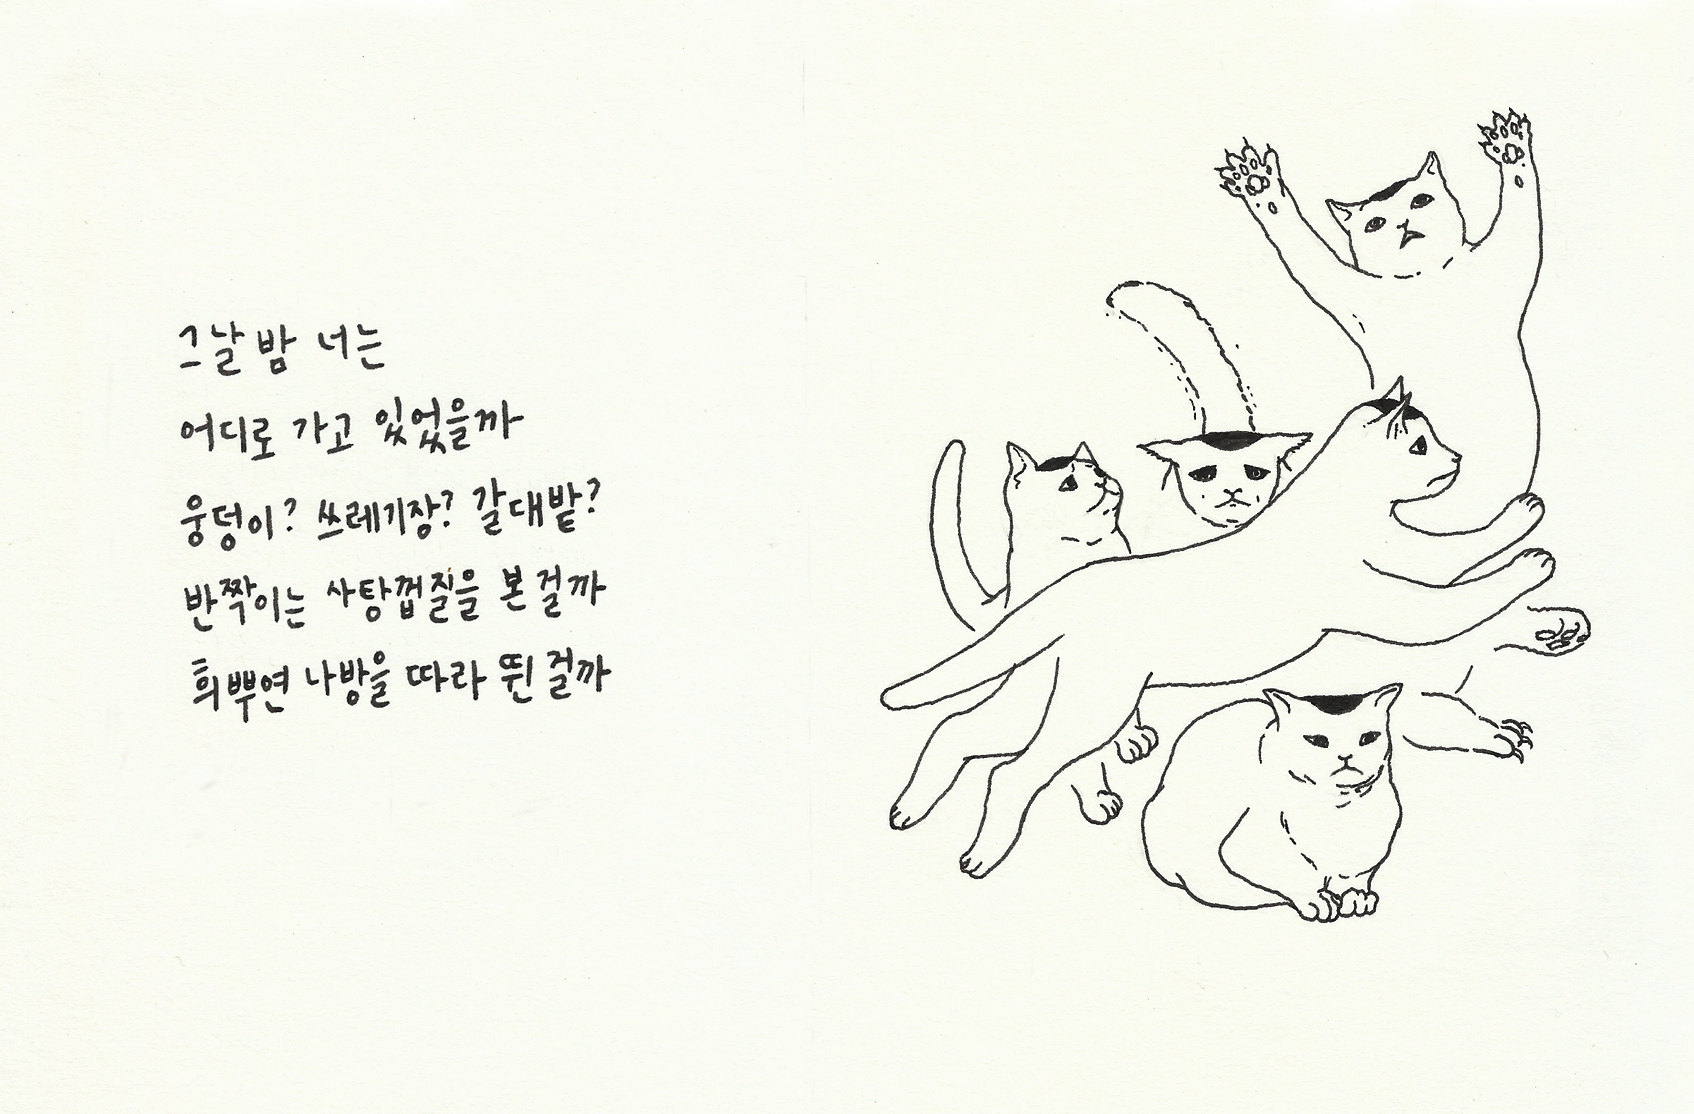 그날 밤 너는
어디로 가고 있었을까
웅덩이? 쓰레기장? 갈대밭?
반짝이는 사탕껍질을 본걸까
희뿌연 나방을 따라 뛴걸까